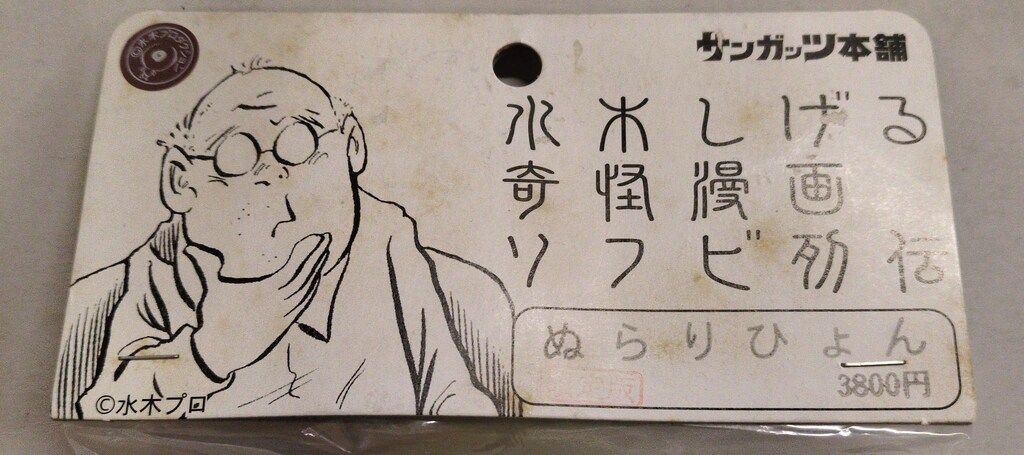 ©水木プロダクション
サンガッツ本舗
水木しげる
奇怪漫画
ソフビ列伝
ぬらりひょん
3800円
©水木プロ